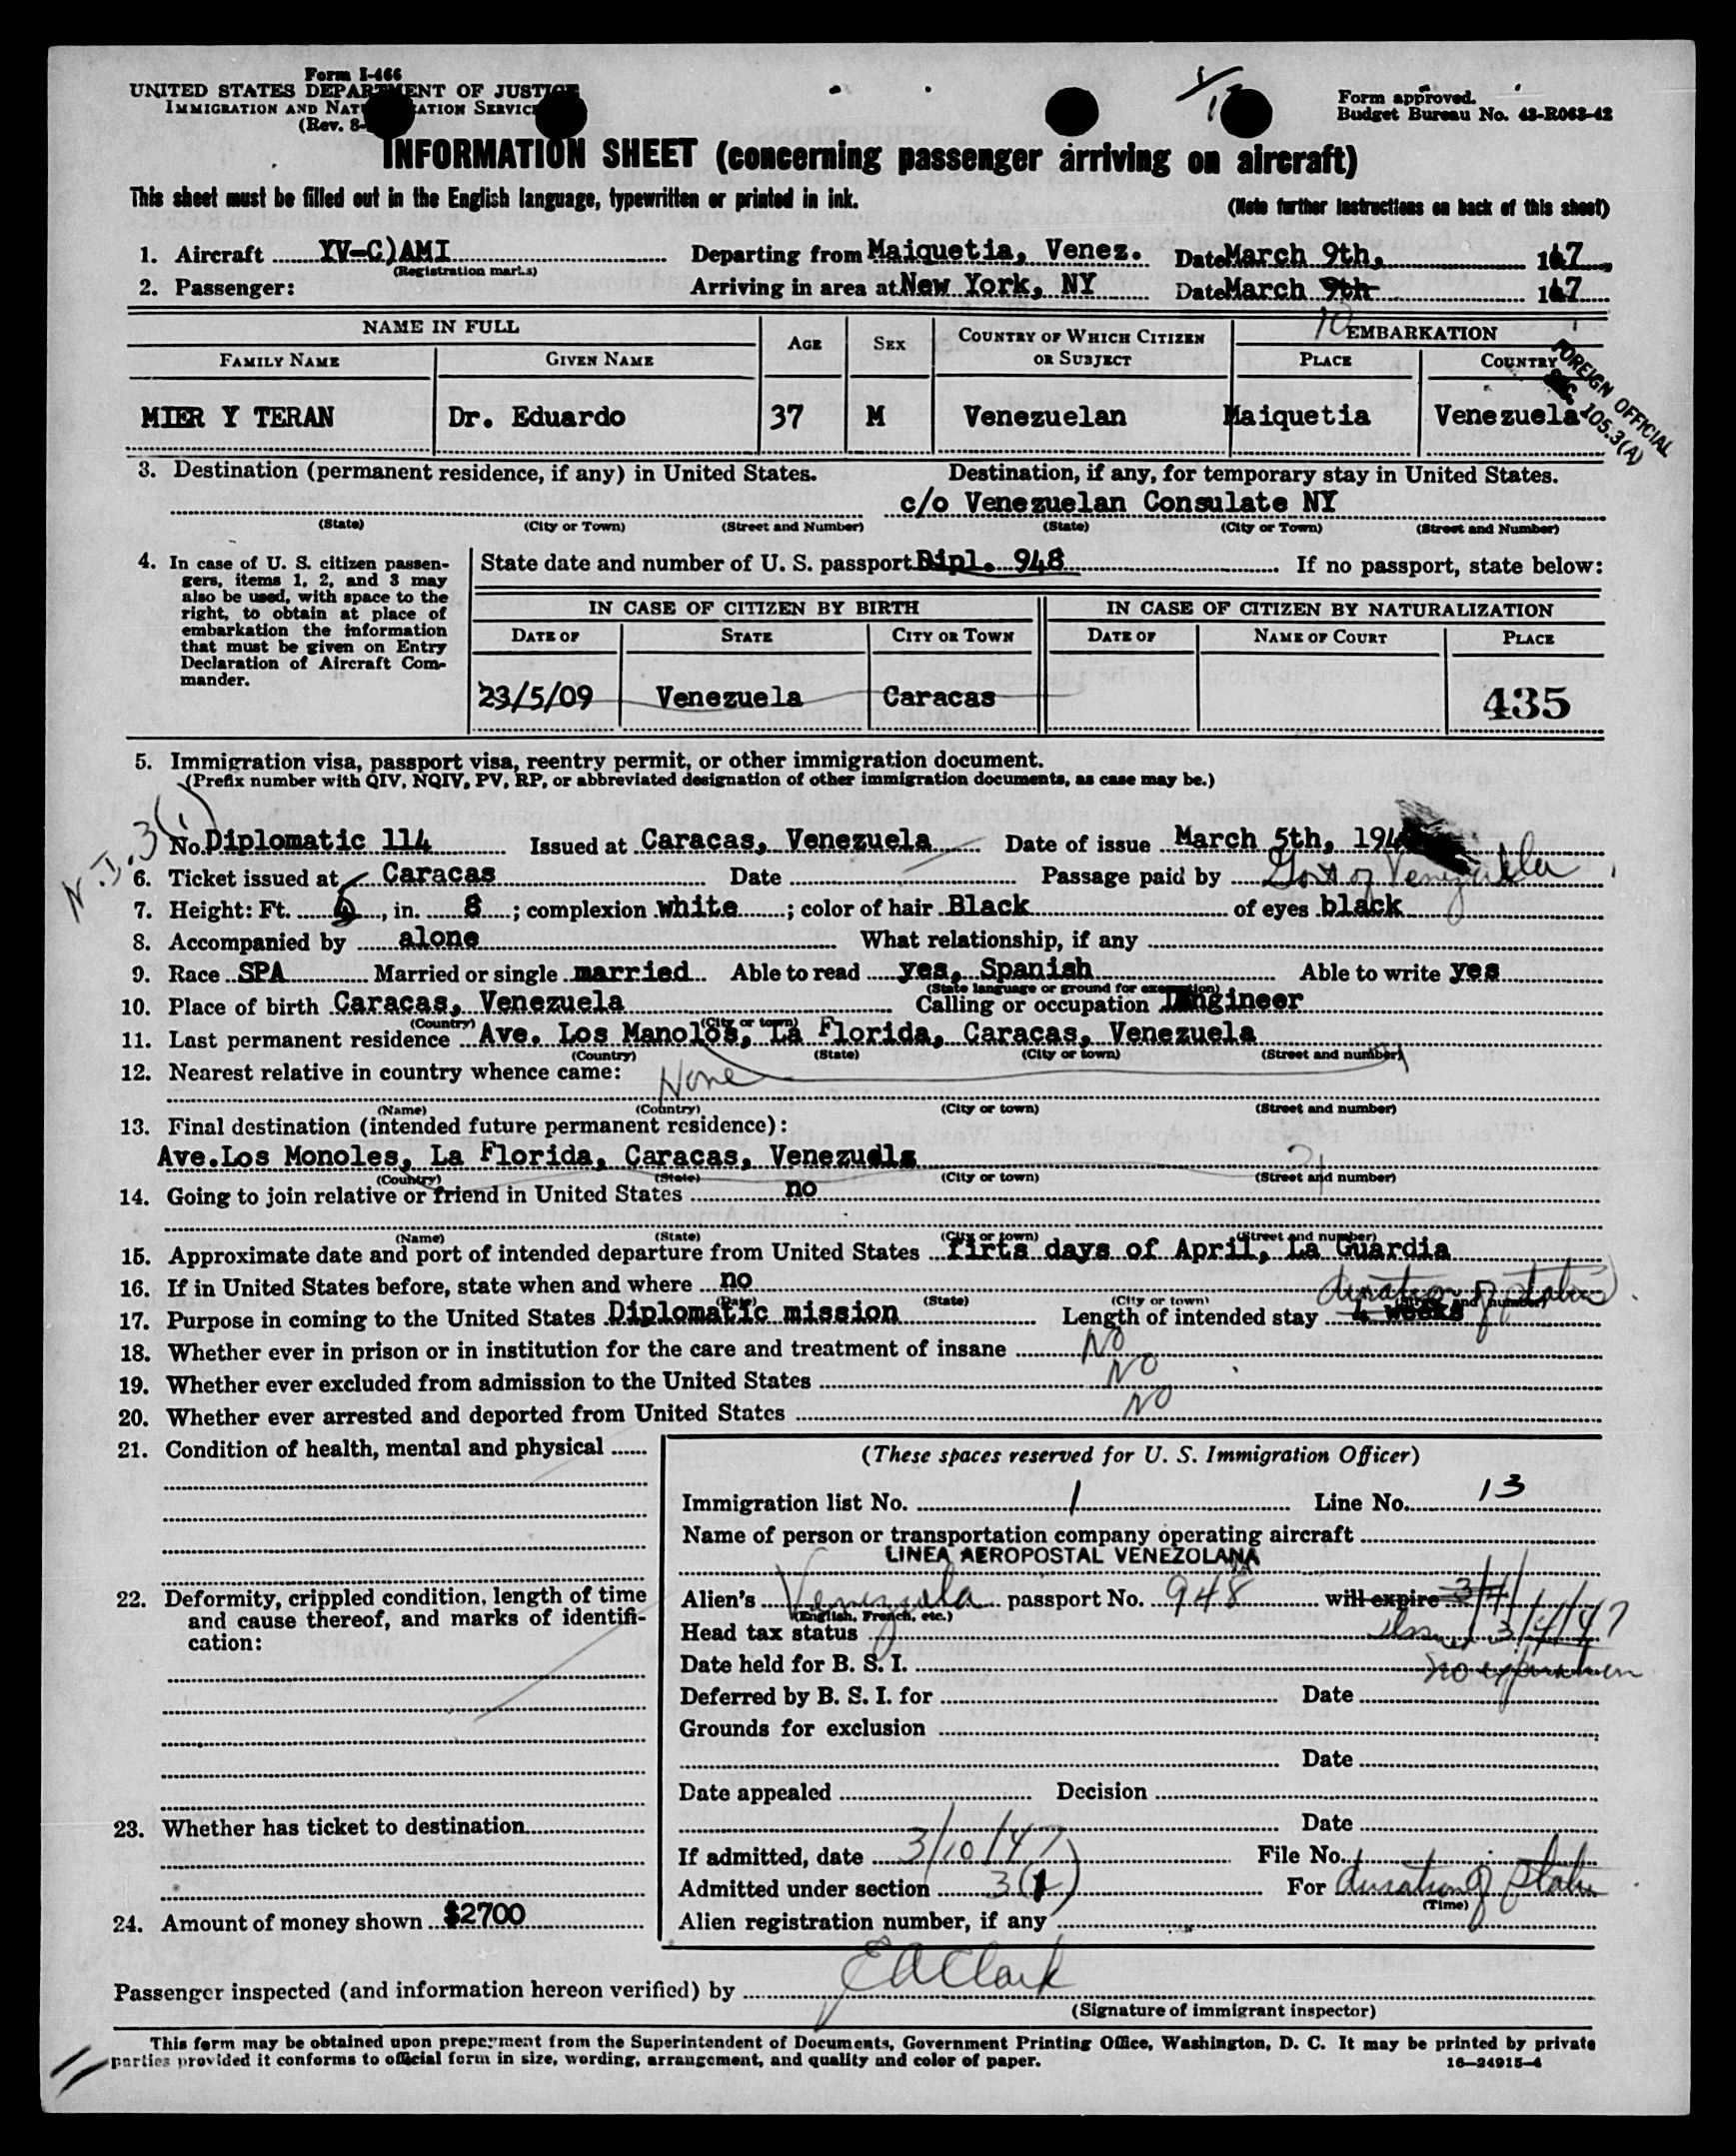 Form I-466
UNITED STATES DEPARTMENT OF JUSTICE
IMMIGRATION AND NATURALIZATION SERVICE
(Rev. 8-
Form approved.
Budget Bureau No. 43-R063-42
INFORMATION SHEET (concerning passenger arriving on aircraft)
This sheet must be filled out in the English language, typewritten or printed in ink.
(Note further instructions on back of this sheet)
1. Aircraft YV-C)AMI Departing from Maiquetia, Venez. Date March 9th, 147
(Registration marks)
2. Passenger: Arriving in area at New York, NY Date March 9th 147
10
NAME IN FULL AGE SEX COUNTRY OF WHICH CITIZEN OR SUBJECT EMBARKATION
FAMILY NAME GIVEN NAME PLACE COUNTRY
FOREIGN OFFICIAL
SEC 105.3(A)
MIER Y TERAN Dr. Eduardo 37 M Venezuelan Maiquetia Venezuela
3. Destination (permanent residence, if any) in United States. Destination, if any, for temporary stay in United States.
c/o Venezuelan Consulate NY
(State) (City or Town) (Street and Number) (State) (City or Town) (Street and Number)
4. In case of U. S. citizen passen-
gers, items 1, 2, and 3 may
also be used, with space to the
right, to obtain at place of
embarkation the information
that must be given on Entry
Declaration of Aircraft Com-
mander.
State date and number of U. S. passport Dipl. 948 If no passport, state below:
IN CASE OF CITIZEN BY BIRTH IN CASE OF CITIZEN BY NATURALIZATION
DATE OF STATE CITY OR TOWN DATE OF NAME OF COURT PLACE
23/5/09 Venezuela Caracas 435
5. Immigration visa, passport visa, reentry permit, or other immigration document.
(Prefix number with QIV, NQIV, PV, RP, or abbreviated designation of other immigration documents, as case may be.)
N.I. 3(1)
No. Diplomatic 114 Issued at Caracas, Venezuela Date of issue March 5th, 194
6. Ticket issued at Caracas Date Passage paid by Govt of Venezuela
7. Height: Ft. 5, in. 8; complexion white; color of hair Black of eyes black
8. Accompanied by alone What relationship, if any
9. Race SPA Married or single married Able to read yes, Spanish Able to write yes
(State language or ground for exemption)
10. Place of birth Caracas, Venezuela Calling or occupation Engineer
(Country) (City or town)
11. Last permanent residence Ave. Los Manolos, La Florida, Caracas, Venezuela
(Country) (State) (City or town) (Street and number)
12. Nearest relative in country whence came: None
(Name) (Country) (City or town) (Street and number)
13. Final destination (intended future permanent residence):
Ave.Los Monoles, La Florida, Caracas, Venezuela
(Country) (State) (City or town) (Street and number)
14. Going to join relative or friend in United States no
(Name) (State) (City or town) (Street and number)
15. Approximate date and port of intended departure from United States firts days of April, La Guardia
16. If in United States before, state when and where no
(Date) (State) (City or town) (Street and number)
duration of status
17. Purpose in coming to the United States Diplomatic mission Length of intended stay 4 weeks
18. Whether ever in prison or in institution for the care and treatment of insane No
19. Whether ever excluded from admission to the United States No
20. Whether ever arrested and deported from United States No
21. Condition of health, mental and physical
22. Deformity, crippled condition, length of time
and cause thereof, and marks of identifi-
cation:
23. Whether has ticket to destination
24. Amount of money shown $2700
(These spaces reserved for U. S. Immigration Officer)
Immigration list No. 1 Line No. 13
Name of person or transportation company operating aircraft
LINEA AEROPOSTAL VENEZOLANA
Alien's Venezuela passport No. 948 will expire
(English, French, etc.)
Head tax status Issued 3/4/47
Date held for B. S. I. no
Deferred by B. S. I. for Date
Grounds for exclusion
Date
Date appealed Decision
Date
If admitted, date 3/10/47 File No.
Admitted under section 3(1) For duration of status
(Time)
Alien registration number, if any
Passenger inspected (and information hereon verified) by EA Clark
(Signature of immigrant inspector)
This form may be obtained upon prepayment from the Superintendent of Documents, Government Printing Office, Washington, D. C. It may be printed by private
parties provided it conforms to official form in size, wording, arrangement, and quality and color of paper.
16—24915-4